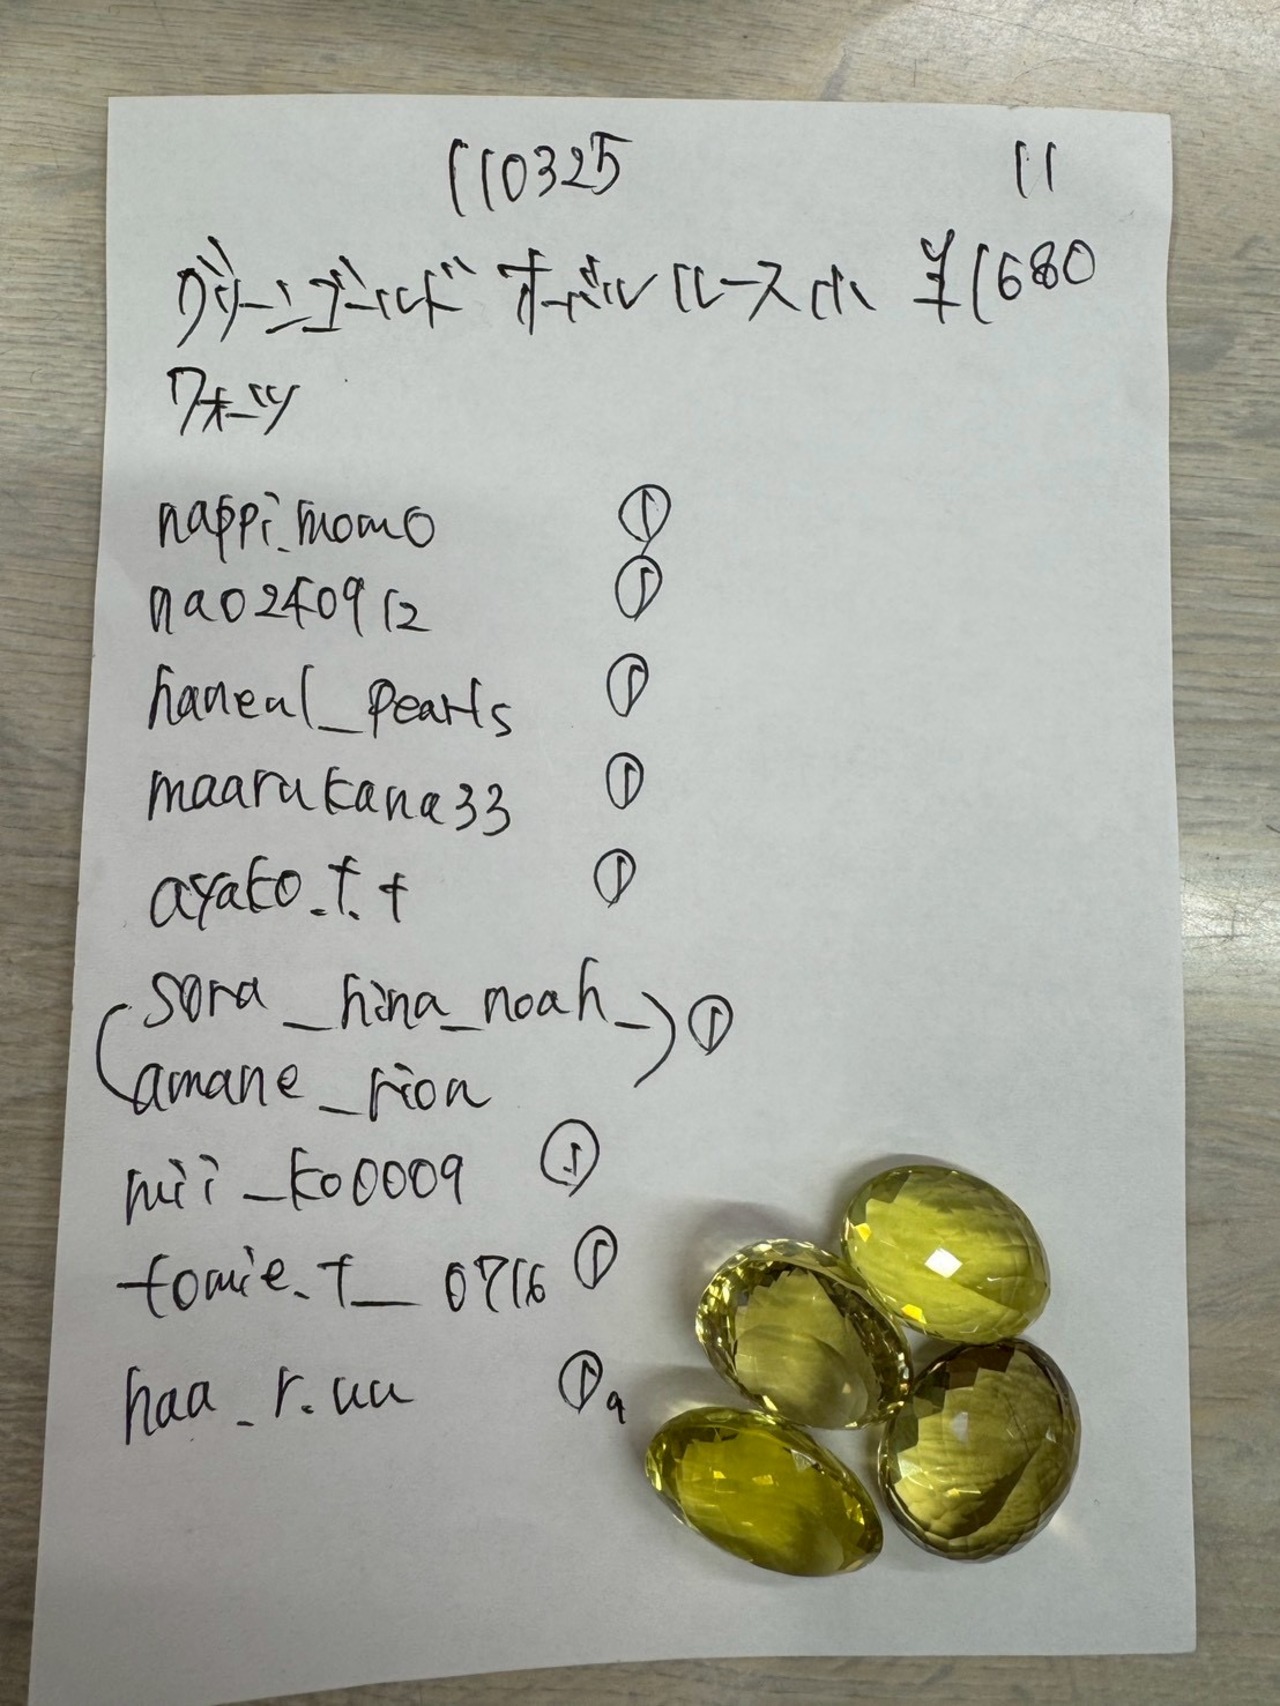 110325 11
グリーンゴールド オーバル ルース 小 ¥1680
クォーツ
nappi_momo ①
nao240912 ①
haneul_pearls ①
maarukana33 ①
ayako.t.t ①
(sora_hina_noah_) ①
amane_rion
mii_ko0009 ①
tomie.t__0716 ①
haa_r.uu ① 9